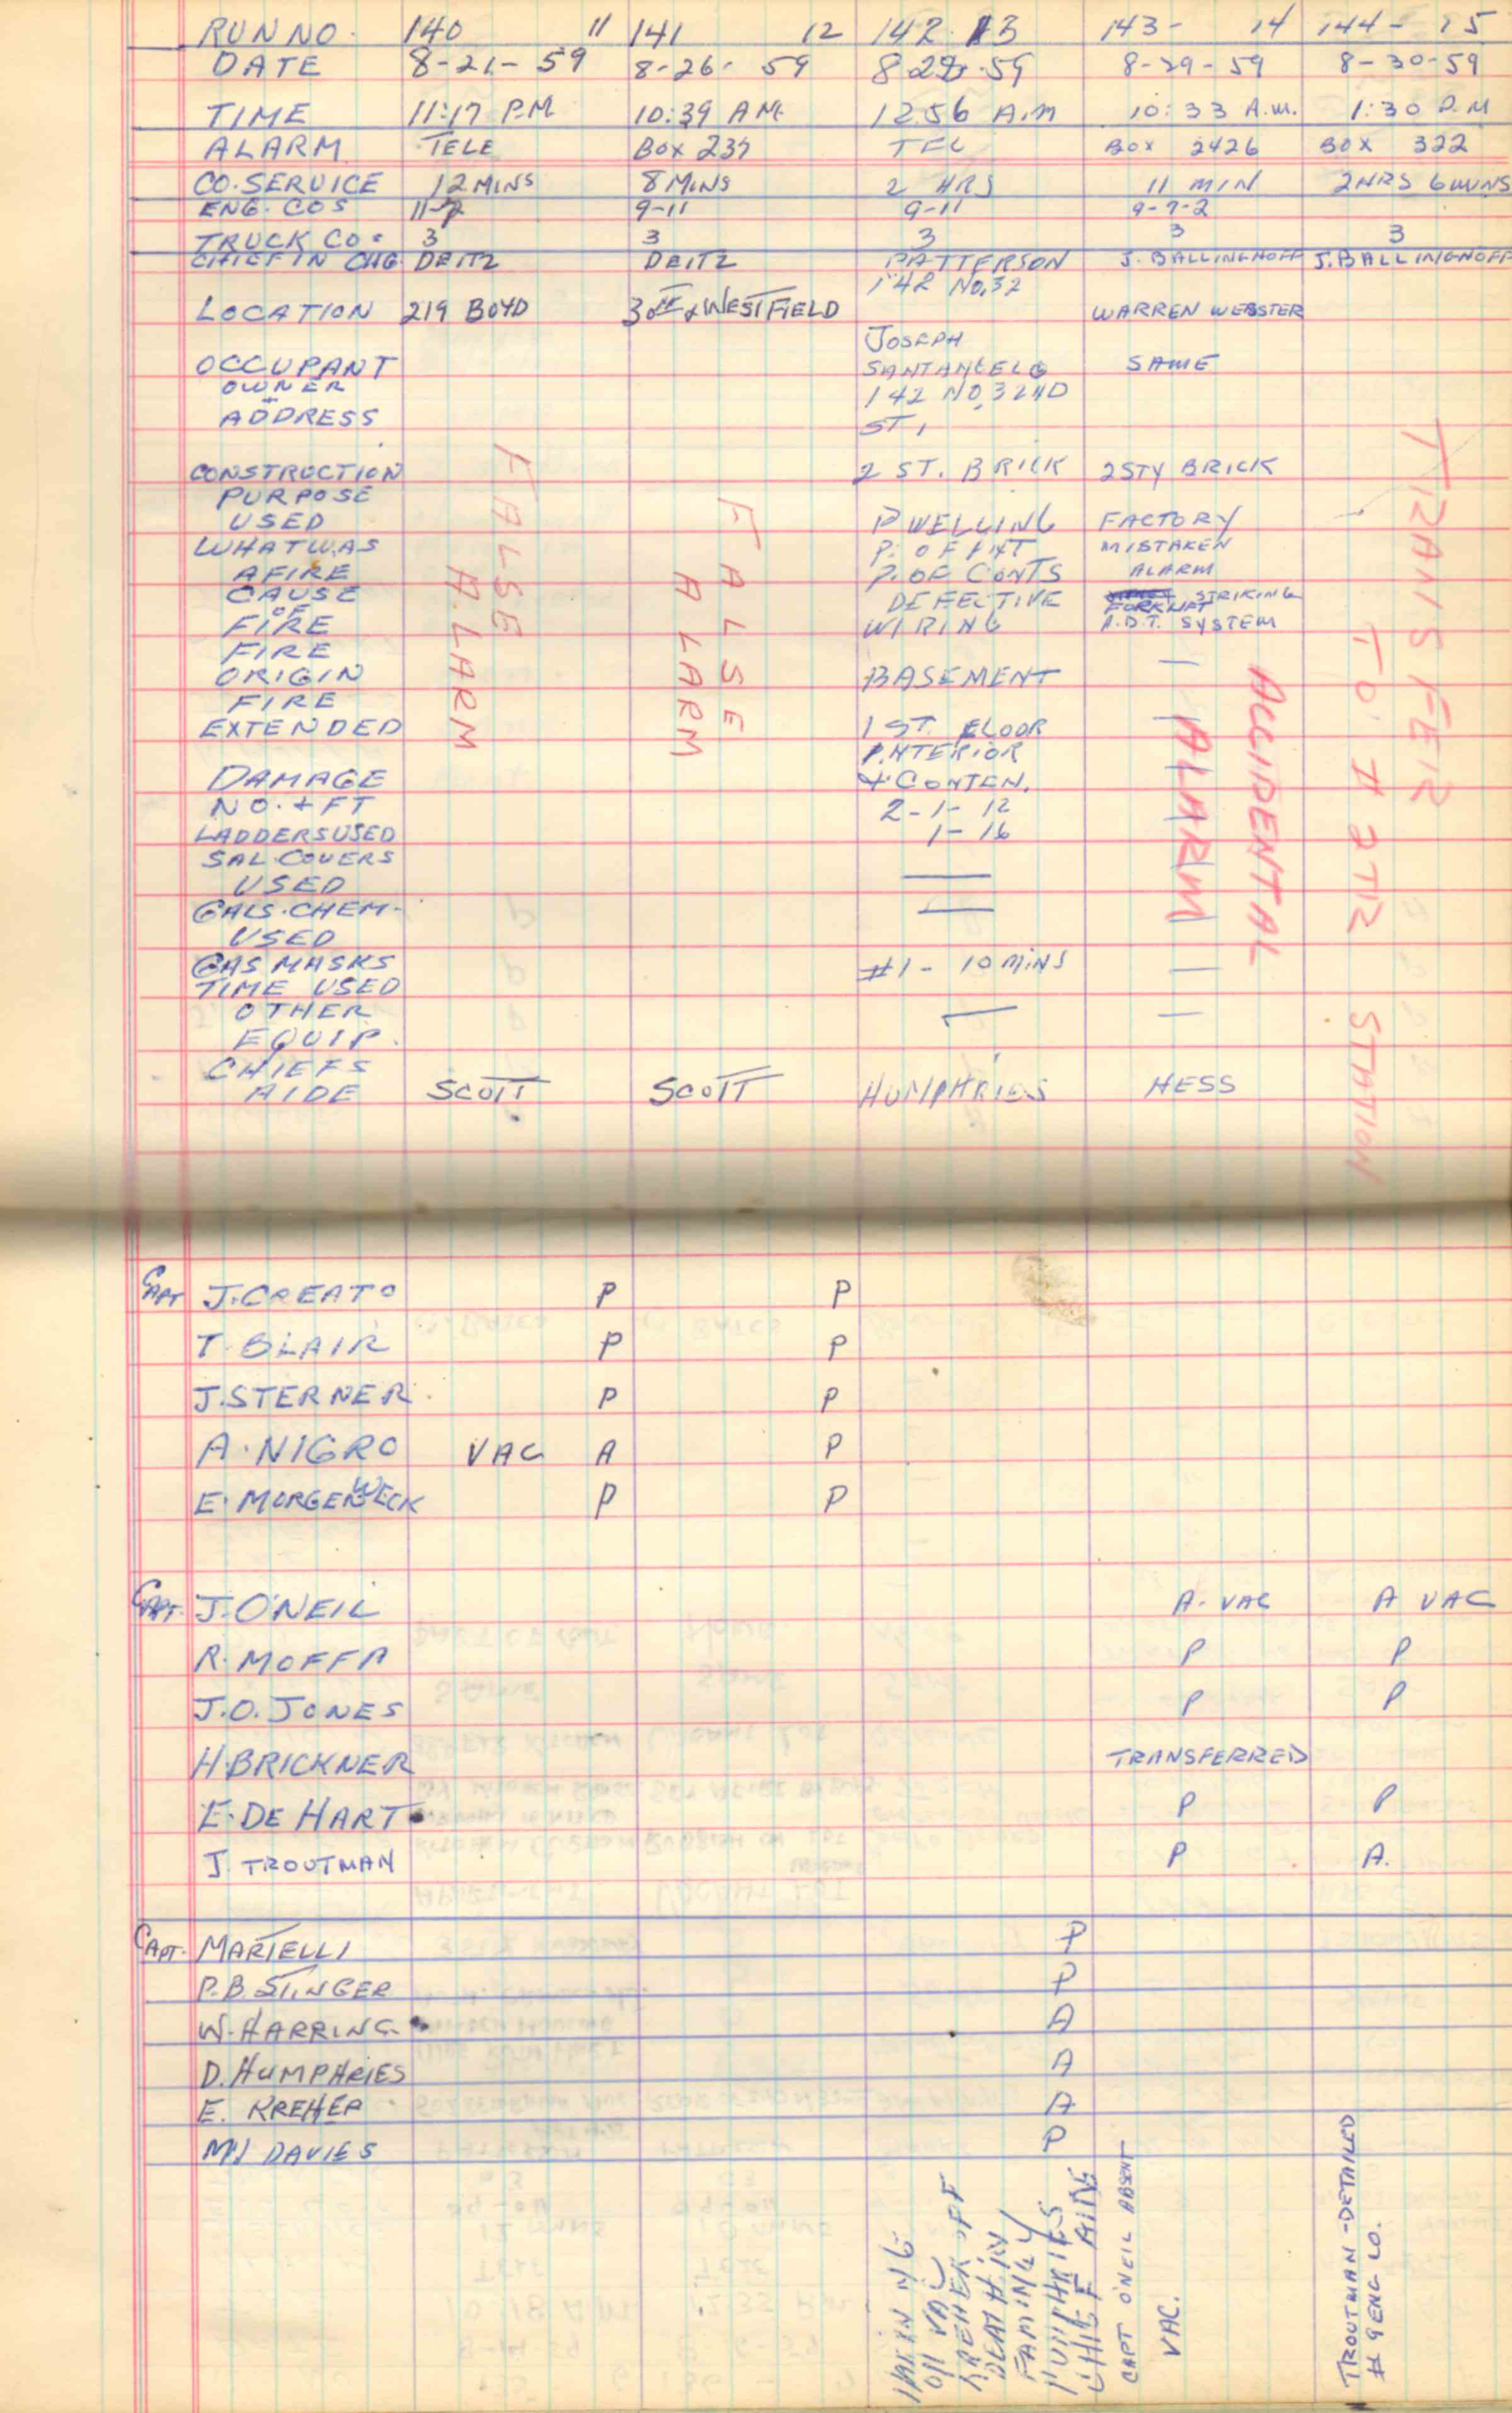 RUN NO. 140 11 141 12 142 13 143- 14 144- 15
DATE 8-21-59 8-26-59 8-29-59 8-30-59
TIME 11:17 P.M 10:39 AM 12.56 A.M 10:33 A.M. 1:30 P.M
ALARM TELE BOX 237 TEL BOX 2426 BOX 322
CO. SERVICE 12 MINS 8 MINS 2 HRS 11 MIN 2HRS 6 MINS
ENG. COS 9-11 9-11 9-7-2
TRUCK CO. 3 3 3 3 3
CHIEF IN CHG DEITZ DEITZ PATTERSON J. BALLINGHOFF J. BALLINGHOFF
142 NO. 32
LOCATION 219 BOYD 30TH & WESTFIELD WARREN WEBSTER
JOSEPH
OCCUPANT SANTANGELO SAME
OWNER 142 NO. 32ND
ADDRESS ST,
CONSTRUCTION 2 ST. BRICK 2 STY BRICK
PURPOSE
USED DWELLING FACTORY
WHAT WAS P. OF INT MISTAKEN
AFIRE P. OF CONTS ALARM
CAUSE DEFECTIVE STRIKING
OF FORKLIFT
FIRE WIRING A.D.T. SYSTEM
FIRE
ORIGIN BASEMENT —
FIRE
EXTENDED 1 ST. FLOOR —
INTERIOR
DAMAGE & CONTEN. —
NO. + FT 2-1-12
LADDERS USED 1-16
SAL. COVERS
USED —
GALS. CHEM- —
USED
GAS MASKS #1 - 10 MINS —
TIME USED
OTHER — —
EQUIP.
CHIEFS
AIDE SCOTT SCOTT HUMPHRIES HESS
FALSE
ALARM
FALSE
ALARM
ACCIDENTAL
ALARM
TRANSFER
TO # 2 TR STATION
CAPT J. CREATO P P
T. BLAIR P P
J. STERNER P P
A. NIGRO VAC A P
E. MORGENWECK P P
CAPT. J. O'NEIL A. VAC A VAC
R. MOFFA P P
J.O. JONES P P
H. BRICKNER TRANSFERRED
E. DE HART P P
J. TROUTMAN P A.
CAPT. MARTELLI P
P.B. STINGER P
W. HARRING. A
D. HUMPHRIES A
E. KREHER A
M. DAVIES P
ON VAC
KREHER OFF
DEATH IN
FAMILY
HUMPHRIES
CHIEF AIDE
CAPT O'NEIL ABSENT
VAC.
TROUTMAN - DETAILED
# 9 ENG CO.